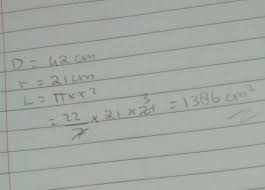 D = 42 cm
r = 21 cm
L = π x r²
= 22/7 x 21 x 21 3 = 1386 cm²